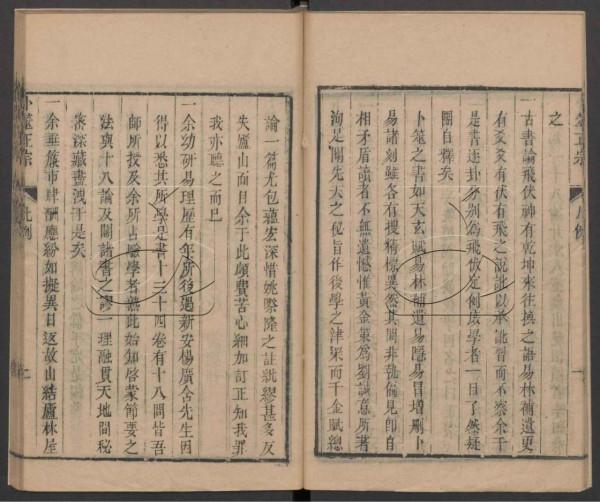 之
一古書論飛伏神有乾坤來往換之語易林補遺更
有爻爻有伏有飛之說訛以承訛習而不察余于
是書逐卦分別為飛伏定例底學者一目了然疑
團自釋矣
卜筮之書如天玄賦易林補遺易隱易冒增刪卜
易諸刻雖各有搜精標異然其間非亂倫見即自
相矛盾讀者不無遺憾惟黃金策為劉誠意所著
洵是闡先天之秘旨作後學之津梁而千金賦總
論一篇尤包蘊宏深惜姚際隆之註紕繆甚多反
失廬山面目余于此頗費苦心細加訂正知我罪
我亦聽之而已
一余幼研易理歷有年所後遇新安楊廣含先生因
得以悉其所學是書十三十四卷有十八問皆吾
師所授及余所占驗學者熟此始知啓蒙節要之
法與十八論及闢諸書之謬一理融貫天地間秘
密深藏盡洩于是矣
一余垂簾市肆酬應紛如擬異日返故山結廬林屋
卜筮正宗
凡例
一
二